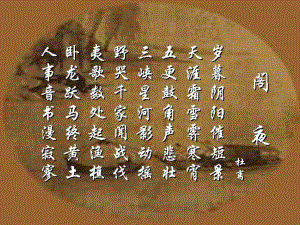 阁夜
杜甫
岁暮阴阳催短景
天涯霜雪霁寒宵
五更鼓角声悲壮
三峡星河影动摇
野哭千家闻战伐
夷歌数处起渔樵
卧龙跃马终黄土
人事音书漫寂寥